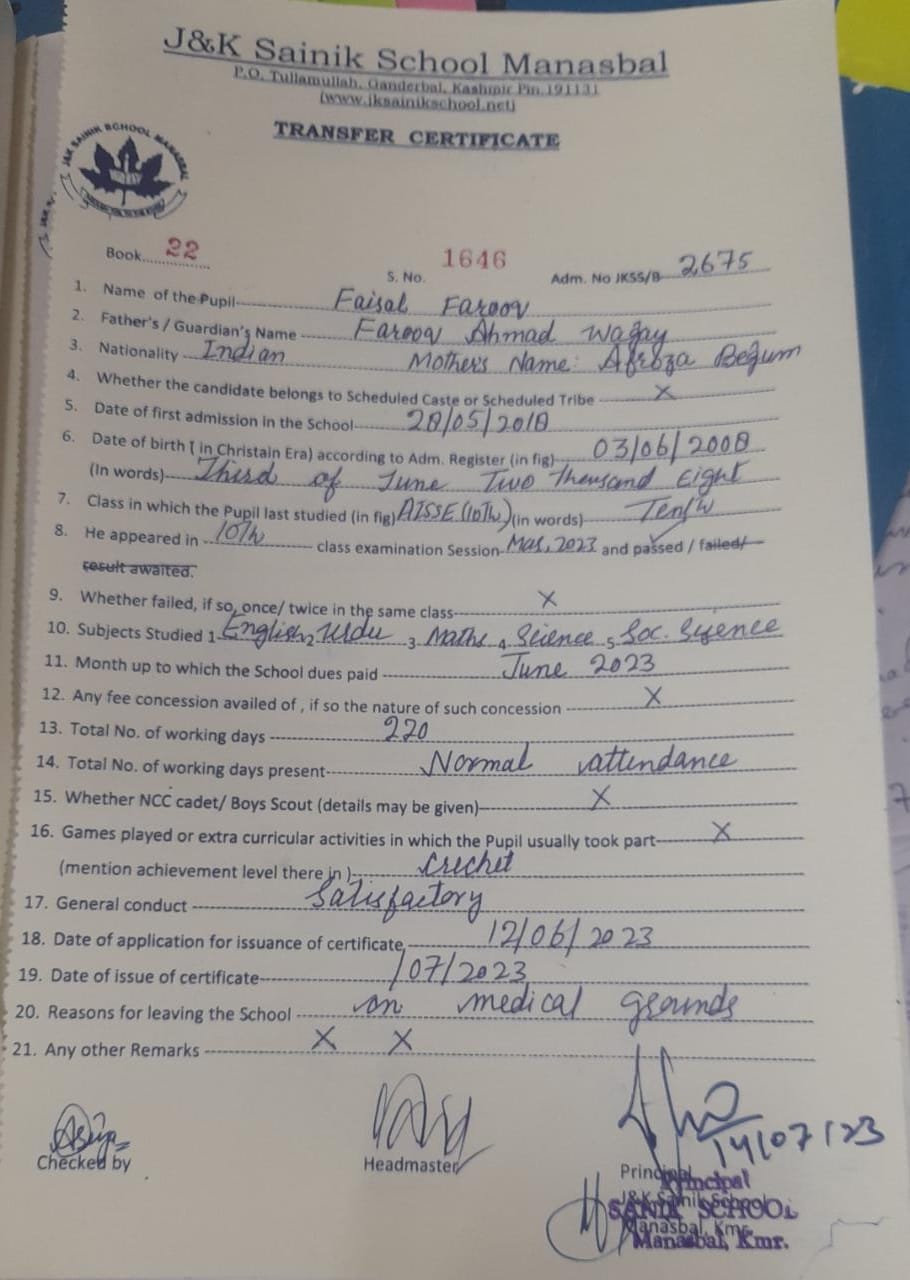 J&K Sainik School Manasbal
P.O. Tullamullah, Ganderbal, Kashmir Pin.191131
(www.jksainikschool.net)
TRANSFER CERTIFICATE
J&K SAINIK SCHOOL MANASBAL
Book......22
S. No. 1646
Adm. No JKSS/B 2675
1. Name of the Pupil Faisal Farooq
2. Father's / Guardian's Name Farooq Ahmad Wagay
3. Nationality Indian Mother's Name: Afroza Begum
4. Whether the candidate belongs to Scheduled Caste or Scheduled Tribe X
5. Date of first admission in the School 28/05/2018
6. Date of birth ( in Christain Era) according to Adm. Register (in fig) 03/06/2008
(In words) Third of June Two Thousand Eight
7. Class in which the Pupil last studied (in fig) AISSE (10Th) (in words) Tenth
8. He appeared in 10Th class examination Session Mar, 2023 and passed / failed/
result awaited.
9. Whether failed, if so, once/ twice in the same class X
10. Subjects Studied 1 English 2 Urdu 3 Maths 4 Science 5 Soc. Syence
11. Month up to which the School dues paid June 2023
12. Any fee concession availed of , if so the nature of such concession X
13. Total No. of working days 220
14. Total No. of working days present Normal attendance
15. Whether NCC cadet/ Boys Scout (details may be given) X
16. Games played or extra curricular activities in which the Pupil usually took part X
(mention achievement level there in ) Crecket
17. General conduct Satisfactory
18. Date of application for issuance of certificate 12/06/2023
19. Date of issue of certificate /07/2023
20. Reasons for leaving the School on medical grounds
21. Any other Remarks X X
14/07/23
Checked by
Headmaster
Principal
Principal
J&K Sainik School
SANIK SCHOOL
Manasbal, Kmr.
Manasbal, Kmr.